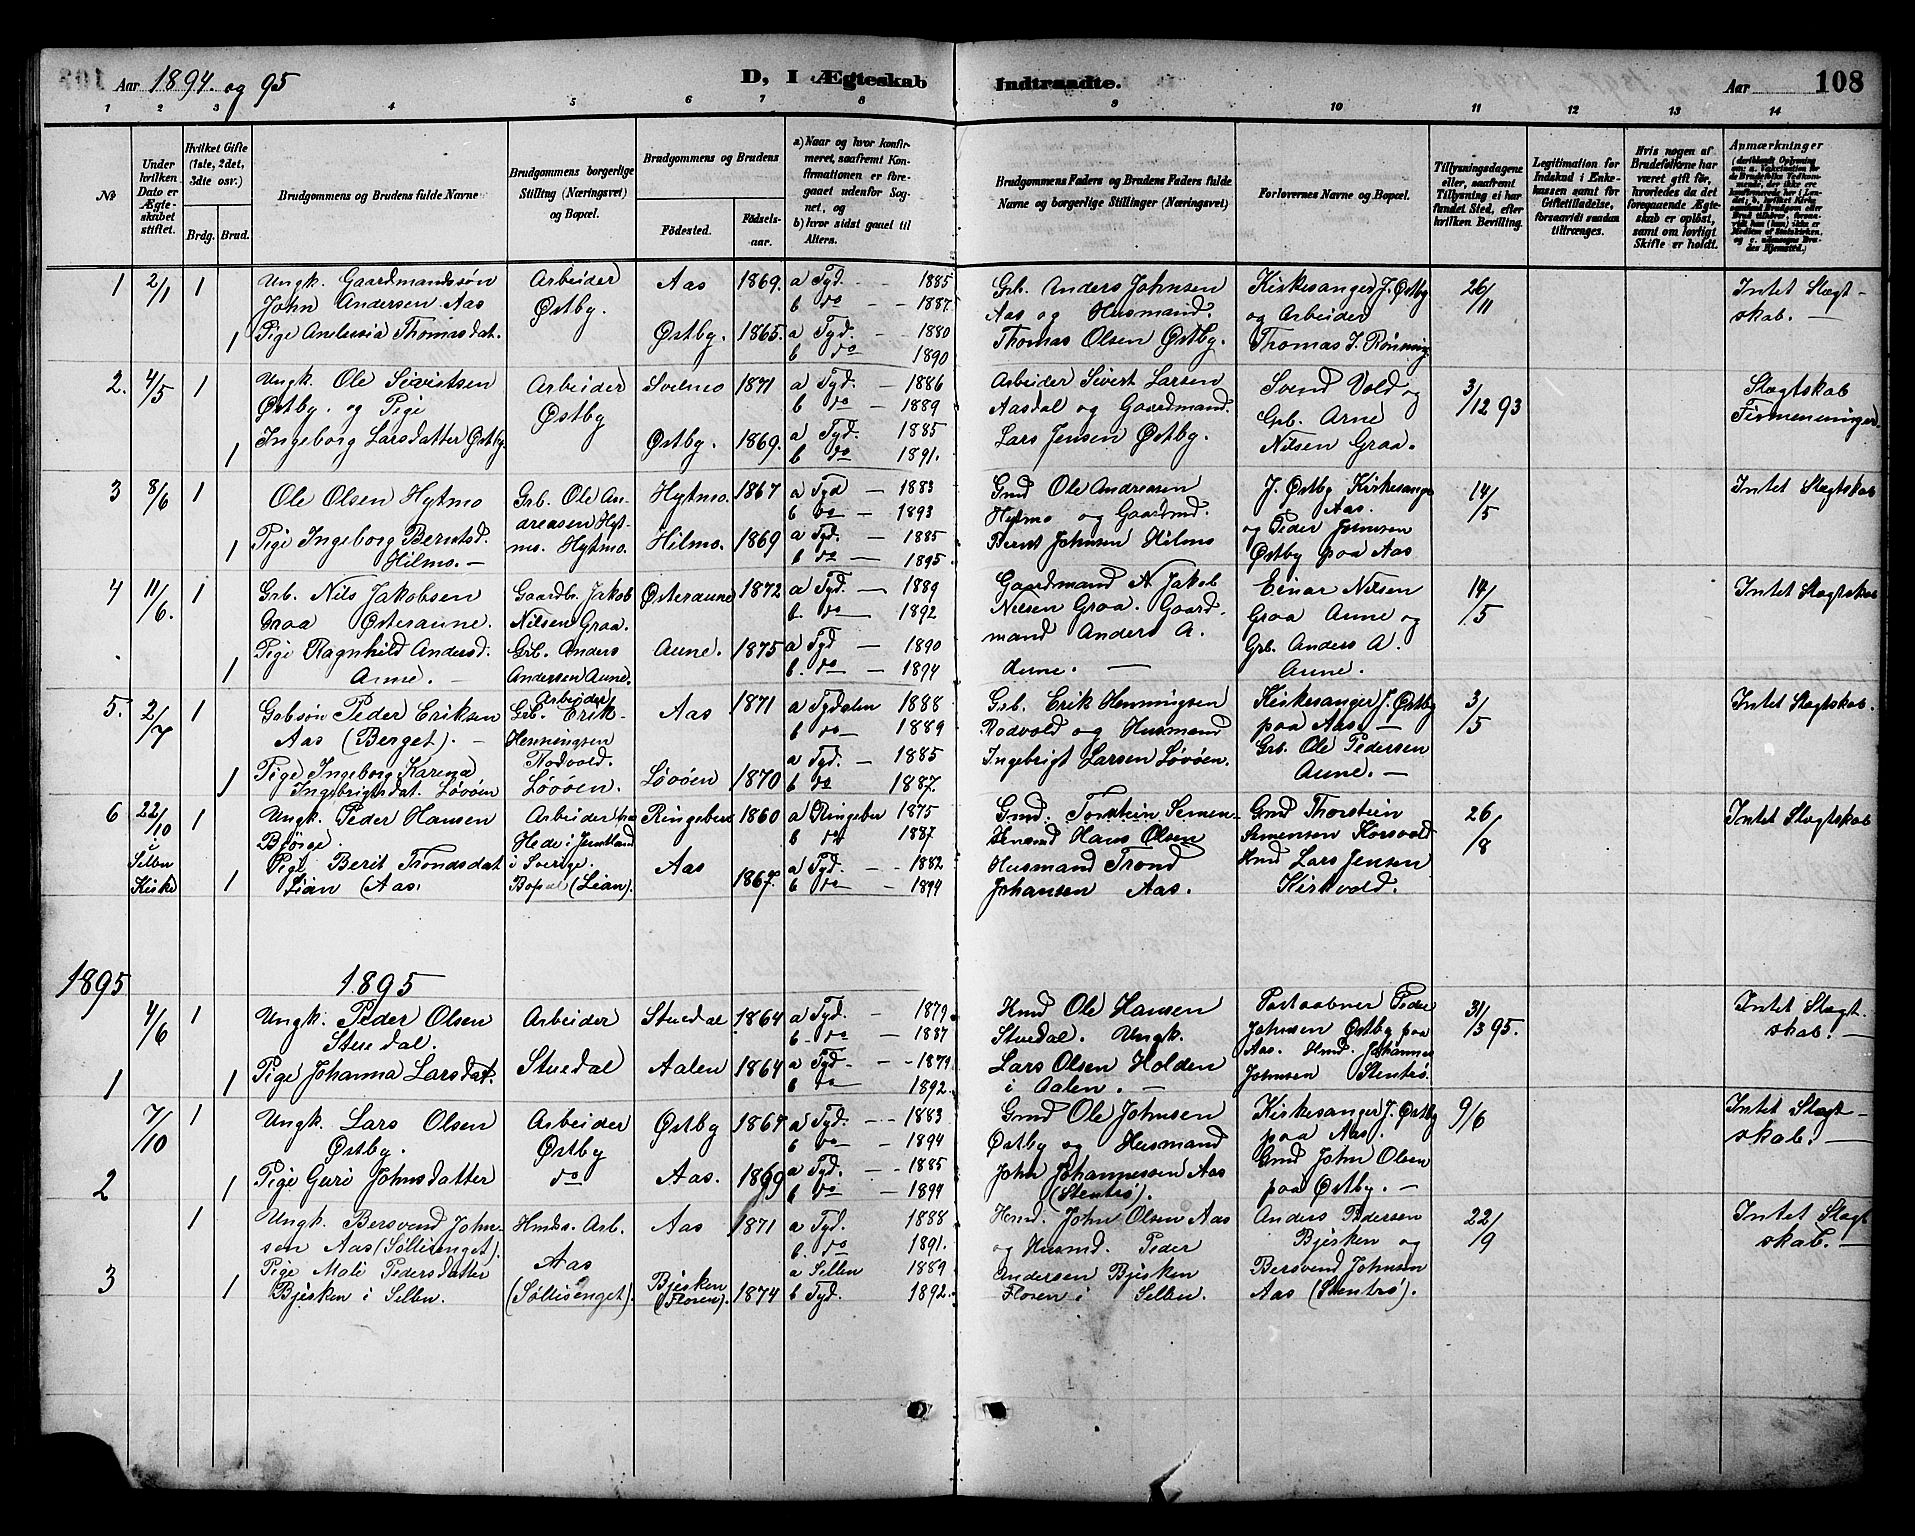 Aar 1894. og 95
D, I Ægteskab
Indtraadte.
Aar
108
1 2 3 4 5 6 7 8 9 10 11 12 13 14
№
Under hvilken Dato er Ægteskabet stiftet.
Hvilket Gifte (1ste, 2det, 3dte osv.)
Brdg. Brud.
Brudgommens og Brudens fulde Navne
Brudgommens borgerlige Stilling (Næringsvei) og Bopæl.
Brudgommens og Brudens
Fødested.
Fødselsaar.
a) Naar og hvor konfirmeret, saafremt Konfirmationen er foregaaet udenfor Sognet, og
b) hvor sidst gaaet til Alters.
Brudgommens Faders og Brudens Faders fulde Navne og borgerlige Stillinger (Næringsvei)
Forlovernes Navne og Bopæl.
Tillysningsdagene eller, saafremt Tillysning ei har fundet Sted, efter hvilken Bevilling.
Legitimation for Indskud i Enkekassen samt for Giftetilladelse, forsaavidt saadan tiltrænges.
Hvis nogen af Brudefolkene har været gift før, hvorledes da det foregaaende Ægteskab er opløst, samt om lovligt Skifte er holdt.
Anmærkninger
1 2/1 1 Ungk. Gaardmandssøn Arbeider Aas 1869. a Tyd. - 1885 Grb. Anders Johnsen Kirkesanger J. Østby 26/11 Intet Slægt-
John Andersen Aas Østby. b do - 1887. Aas og Husmand. og Arbeider skab. —
1 Pige Anelusia Thomasdat. Østby. 1865. a Tyd. - 1880 Thomas Olsen Østby. Thomas J. Rønning
b do 1890
2. 4/5 1 Ungk. Ole Sivertsen Arbeider Svelmo 1871 a Tyd. - 1886 Arbeider Sivert Larsen Svend Vold og 3/12 93 Slægtskab
Østby. og Pige Østby b do - 1889 Aasdal og Gaardmand. Grb. Arne Firmenninger
1 Ingeborg Larsdatter Østby Østby. 1869. a Tyd. - 1885 Lars Jensen Østby. Nilsen Graa.
b do - 1891.
3 8/6 1 Ole Olsen Hytmo Grb. Ole An- Hytmo. 1867 a Tyd - 1883 Gmd Ole Andreasen J. Østby Kirkesange 14/5 Intet Slægtskab
dreasen Hyt- b do - 1893 Hytmo og Gaardmd. Aas.
1 Pige Ingeborg Berntsd. mo. Hytmo. Hilmo. 1869 a Tyd. - 1885 Bernt Johnsen Hilmo og Peder Johnsen
Hilmo. — b do - 1895. Østby paa Aas
4 11/6. 1 Grb. Nils Jakobsen Gaardbr. Jakob Østeraune 1872 a Tyd. - 1889 Gaardmand N Jakob Einar Nilsen 14/5 Intet Slægtskab
Graa Østeraune. Nilsen Graa. b. do - 1892 Nilsen Graa. Gaard- Graa Aune og
Pige Ragnhild Andersd. Grb. Anders Aune. 1875 a Tyd - 1890 mand Anders A. Grb. Anders A.
1 Aune. — Andersen Aune. b. do - 1894 Aune. — Aune.
5. 2/7 1 Gabsøn Peder Eriksen Arbeider Grb. Erik Aas 1871 a Tydalen 1888 Grb. Erik Henningsen Kirkesanger J. Østby 3/5 Intet Slægtskab.
Aas (Berget). — Henningsen b do — 1889 Rodvold og Husmand paa Aas. —
1 Pige Ingeborg Karena Rodvold. a Tyd. - 1885 Ingebrigt Larsen Løvøen. Grb. Ole Pedersen
Ingebrigtsdat. Løvøen Løvøen. Løvøen 1870 b do 1887. Aune. —
6 22/10 1 Ungk. Peder Hansen Arbeider fra Ringeberg 1860 a Ringeber 1875 Gmd. Torstein Semen- Gmd Thorstein 26/8 Intet Slægtskab
i Bjørge. Hede i Jemtland b do 1887 Hans Olsen Semenson Korsvold
Selbu Pige Berit Trondsdat i Sverige. Aas a Tyd. - 1882 Husmand Trond Hmd Lars Jensen
Kirke 1 Lian (Aas. Bopæl (Lian). 1867. b do — 1894 Johansen Aas. Kirkvold.
1895 1895
4/6 1 Ungk. Peder Olsen Arbeider Stuedal 1864 a Tyd. - 1879. Hmd Ole Hansen Postaabner Peder 31/3 95. Intet Slægt-
Stuedal. b. do 1887 Stuedal. Ungk. Johnsen Østby paa skab. —
1 1 Pige Johanna Larsdat. Stuedal Aalen 1864 a Tyd. - 1879. Lars Olsen Holden Aas. Hmd. Johannes
b do - 1892. i Aalen. — Johnsen Stentrø.
7/10 1 Ungk. Lars Olsen Arbeider Østby 1867 a Tyd. - 1883 Gmd Ole Johnsen Kirkesanger J. Østby 9/6 Intet Slægt-
Østby. Østby b do - 1894 Østby og Husmand paa Aas. skab. —
2 1 Pige Guri Johnsdatter do Aas. 1869 a Tyd. - 1885 John Johannessen Aas Gmd John Olsen
b. do 1894 (Stentrø). paa Østby. —
1 Ungk. Bersvend John- Hmds. Arb. Aas 1871 a Tyd. 1888 Hmd. John Olsen Aas Anders Pedersen 22/9 Intet Slægt
sen Aas (Søllisenget). b. do 1891. og Husmd. Peder Bjesken og skab. —
3 Pige Mali Pedersdatter Aas a Selbu 1889 Andersen Bjesken Bersvend Johnsen
1 Bjesken i Selbu. (Søllisenget). Bjesken (Floren). 1874 b Tyd. 1892. Floren i Selbu. Aas (Stentrø).